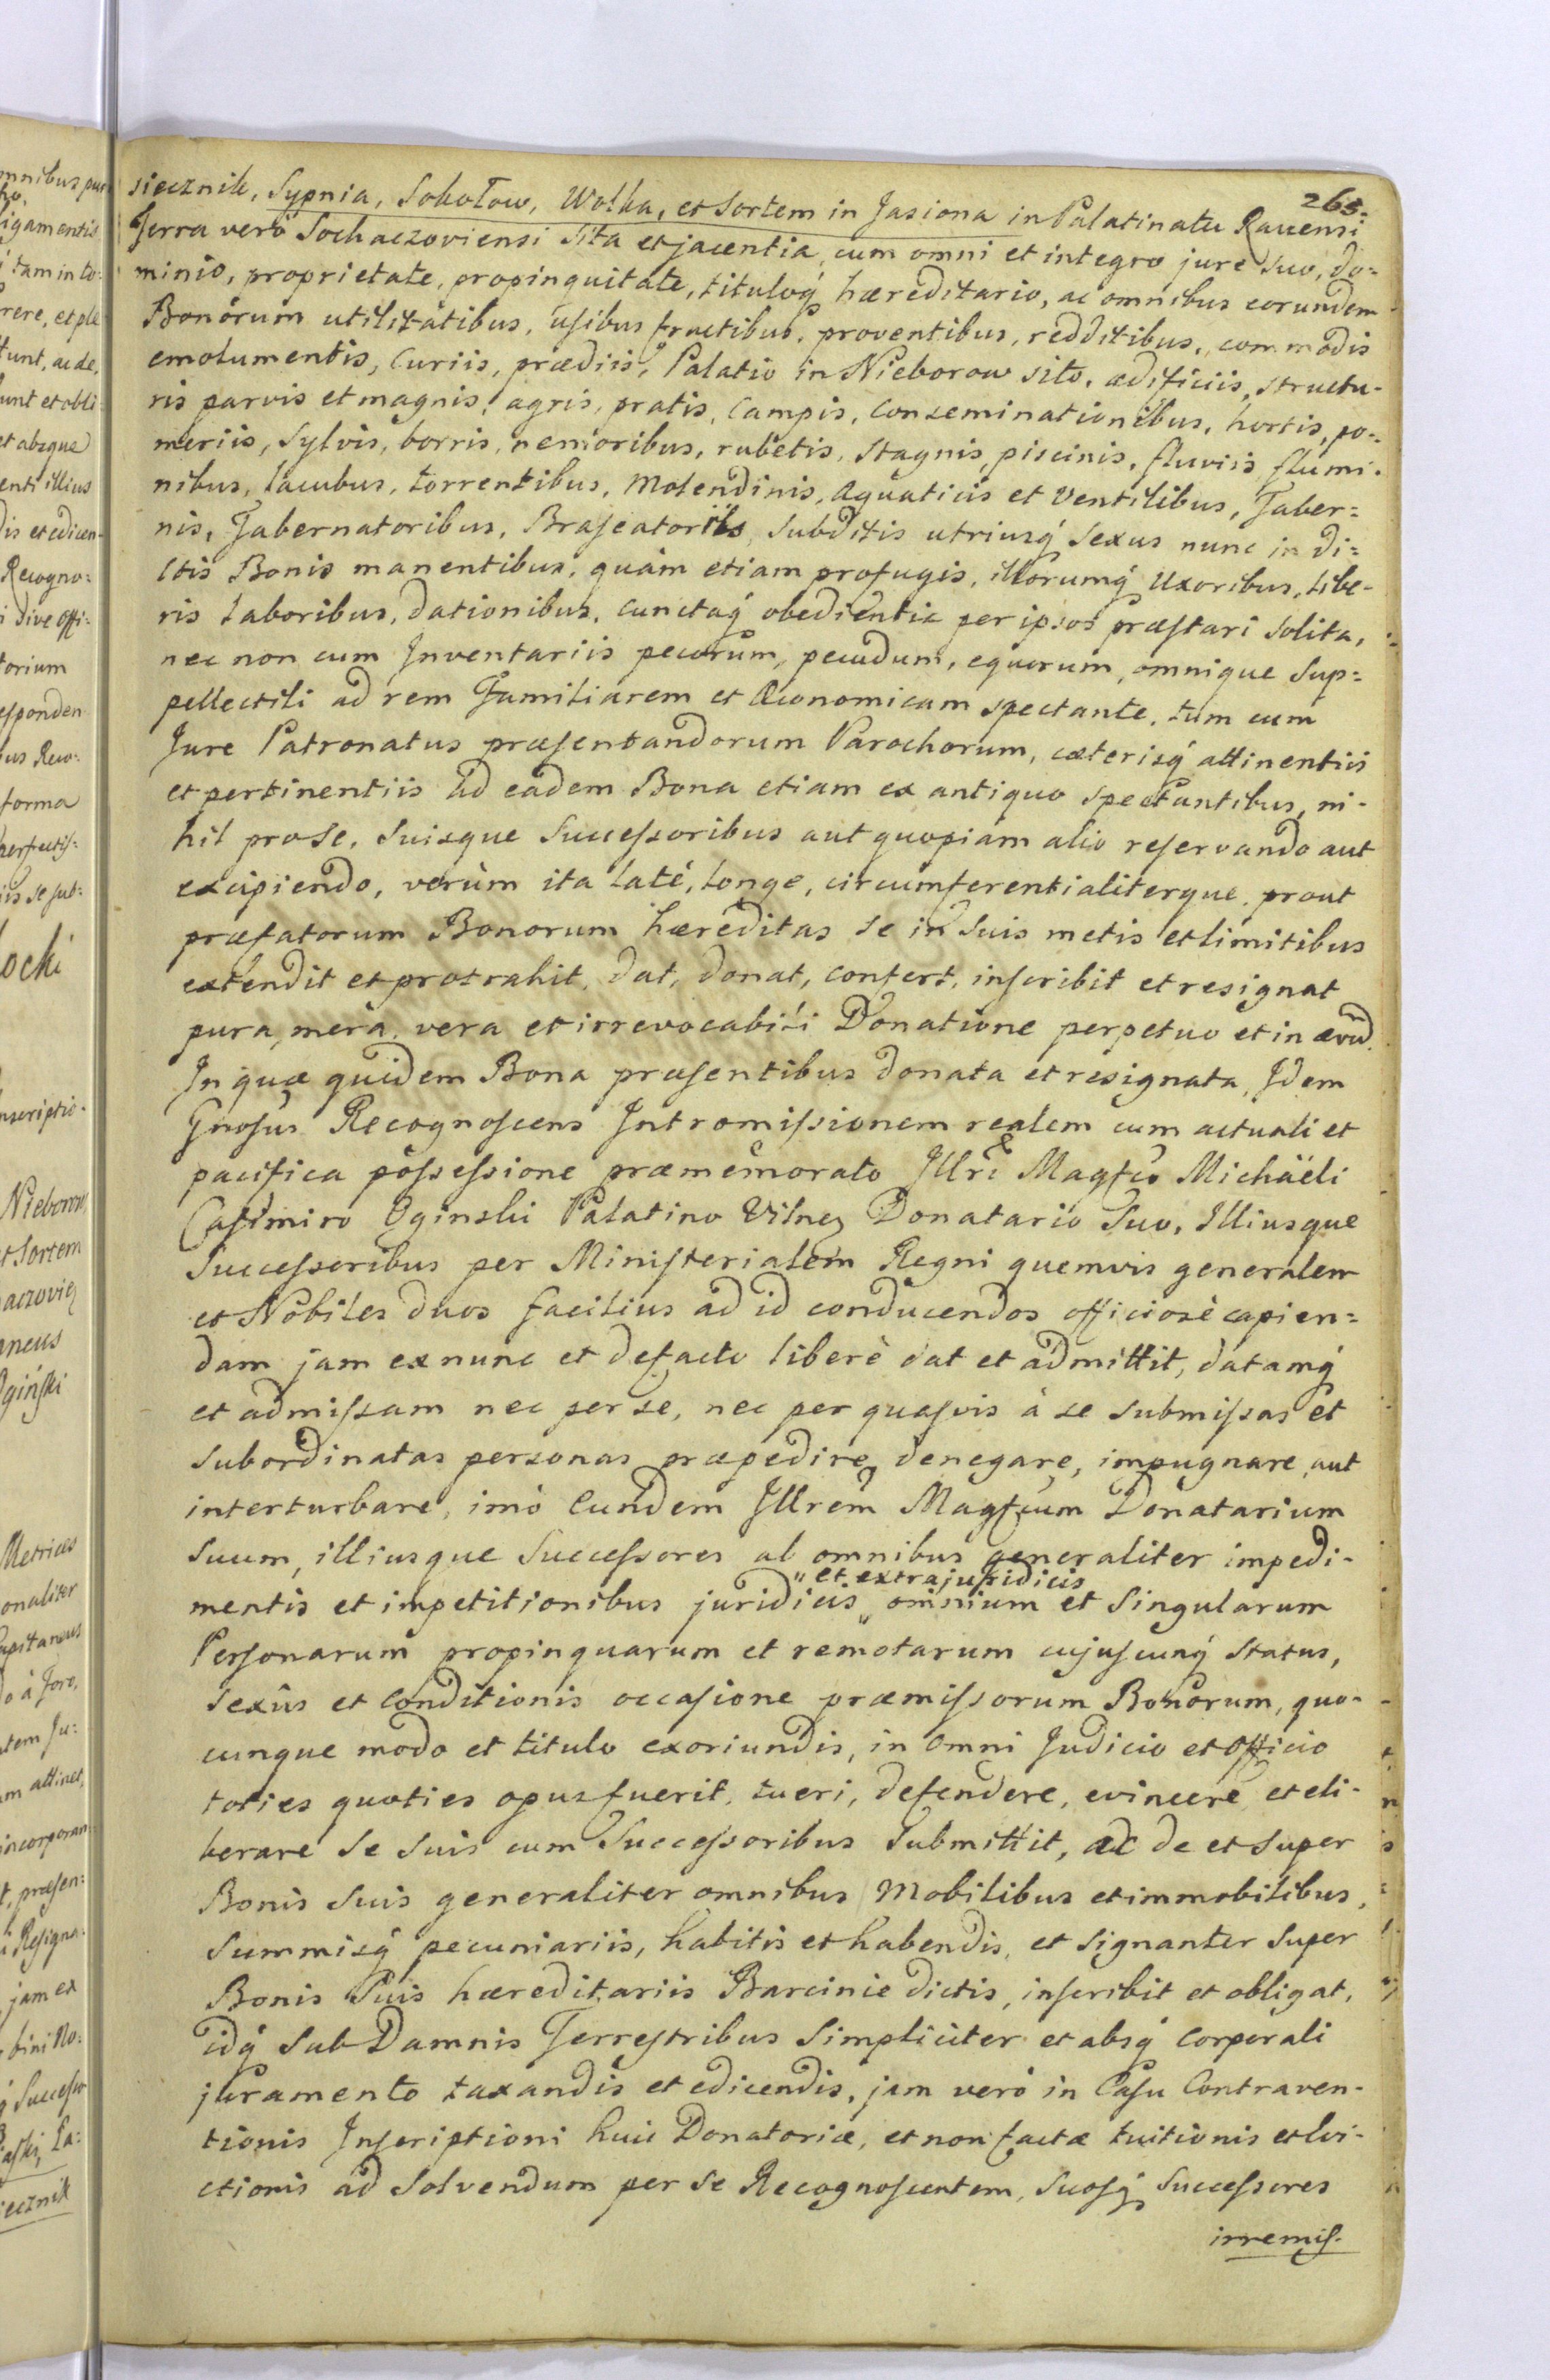 265.
siecznik, Sypnia, Sokołow, Wolka, et Sortem in Jasiona in Palatinatu Ravensi
Terra verò Sochaczoviensi sita et jacentia, cum omni et integro jure suo, do=
minio, proprietate, propinquitate, tituloq́ hæreditario, ac omnibus eorundem
Bonorum utilitatibus, usibus fructibus, proventibus, redditibus, commodis
emolumentis, Curiis, prædiis, Palatio in Nieborow sito, ædificiis, structu-
ris parvis et magnis, agris, pratis, Campis, Conseminationibus, hortis, po=
meriis, Sylvis, borris, nemoribus, rubetis, Stagnis, piscinis, fluviis flumi-
nibus, lacubus, torrentibus, Molendinis, Aquaticis et Ventilibus, Taber=
nis, Tabernatoribus, Braseatoriis, Subditis utriusq́ Sexus nunc in di=
ctis Bonis manentibus, quàm etiam profugis, illorumq́ Uxoribus, libe-
ris laboribus, dationibus, cunctaq́ obedientia per ipsos præstari solita,
nec non cum Inventariis pecorum, pecudum, equorum, omnique Sup=
pellectili ad rem Familiarem et Œconomicam spectante, tum cum
Jure Patronatus præsentandorum Parochorum, cæterisq́ attinentiis
et pertinentiis ad eadem Bona etiam ex antiquo spectantibus, ni-
hil pro se, Suisque Successoribus aut quopiam alio reservando aut
excipiendo, verùm ita latè, longe, circumferentialiterque, prout
præfatorum Bonorum hæreditas se in suis metis et limitibus
extendit et protrahit, dat, donat, confert, inscribit et resignat
pura, mera, vera et irrevocabili Donatione perpetuo et in ævũ.
In quæ quidem Bona præsentibus donata et resignata, Idem
Gnosus Recognoscens Intromissionem realem cum actuali et
pacifica possessione præmemorato Illri Magfco Michaëli
Casimiro Oginski Palatino Vilneȝ Donatario Suo, Illiusque
Successoribus per Ministerialem Regni quemvis generalem
et Nobiles duos facilius ad id conducendos officiosè capien=
dam jam exnunc et defacto liberè dat et admittit, datamq́
et admissam nec per se, nec per quasvis à se submissas et
subordinatas personas præpedire, denegare, impugnare, aut
interturbare, imò Eundem Illrem Magfcum Donatarium
Suum, illiusque Successores ab omnibus generaliter impedi-
mentis et impetitionibus juridicis „et extrajuridicis omnium et Singularum
Personarum propinquarum et remotarum cujuscunq́ Status,
Sexûs et Conditionis occasione præmissorum Bonorum, quo-
cunque modo et titulo exoriundis, in Omni Judicio et Officio
toties quoties opus fuerit, tueri, defendere, evincere et eli-
berare Se Suis cum Successoribus Submittit, ac de et Super
Bonis Suis generaliter omnibus Mobilibus et immobilibus,
Summisq́ pecuniariis, habitis et habendis, et Signanter Super
Bonis Suis hæreditariis Barcinie dictis, inscribit et obligat,
idq́ Sub Damnis Terrestribus Simpliciter et absq́ Corporali
juramento taxandis et edicendis, jam verò in Casu Contraven-
tionis Inscriptioni huic Donatoriæ, et non factæ tuitionis et Evi-
ctionis ad Solvendum per se Recognoscentem, Suosq́ Successores
irremis-